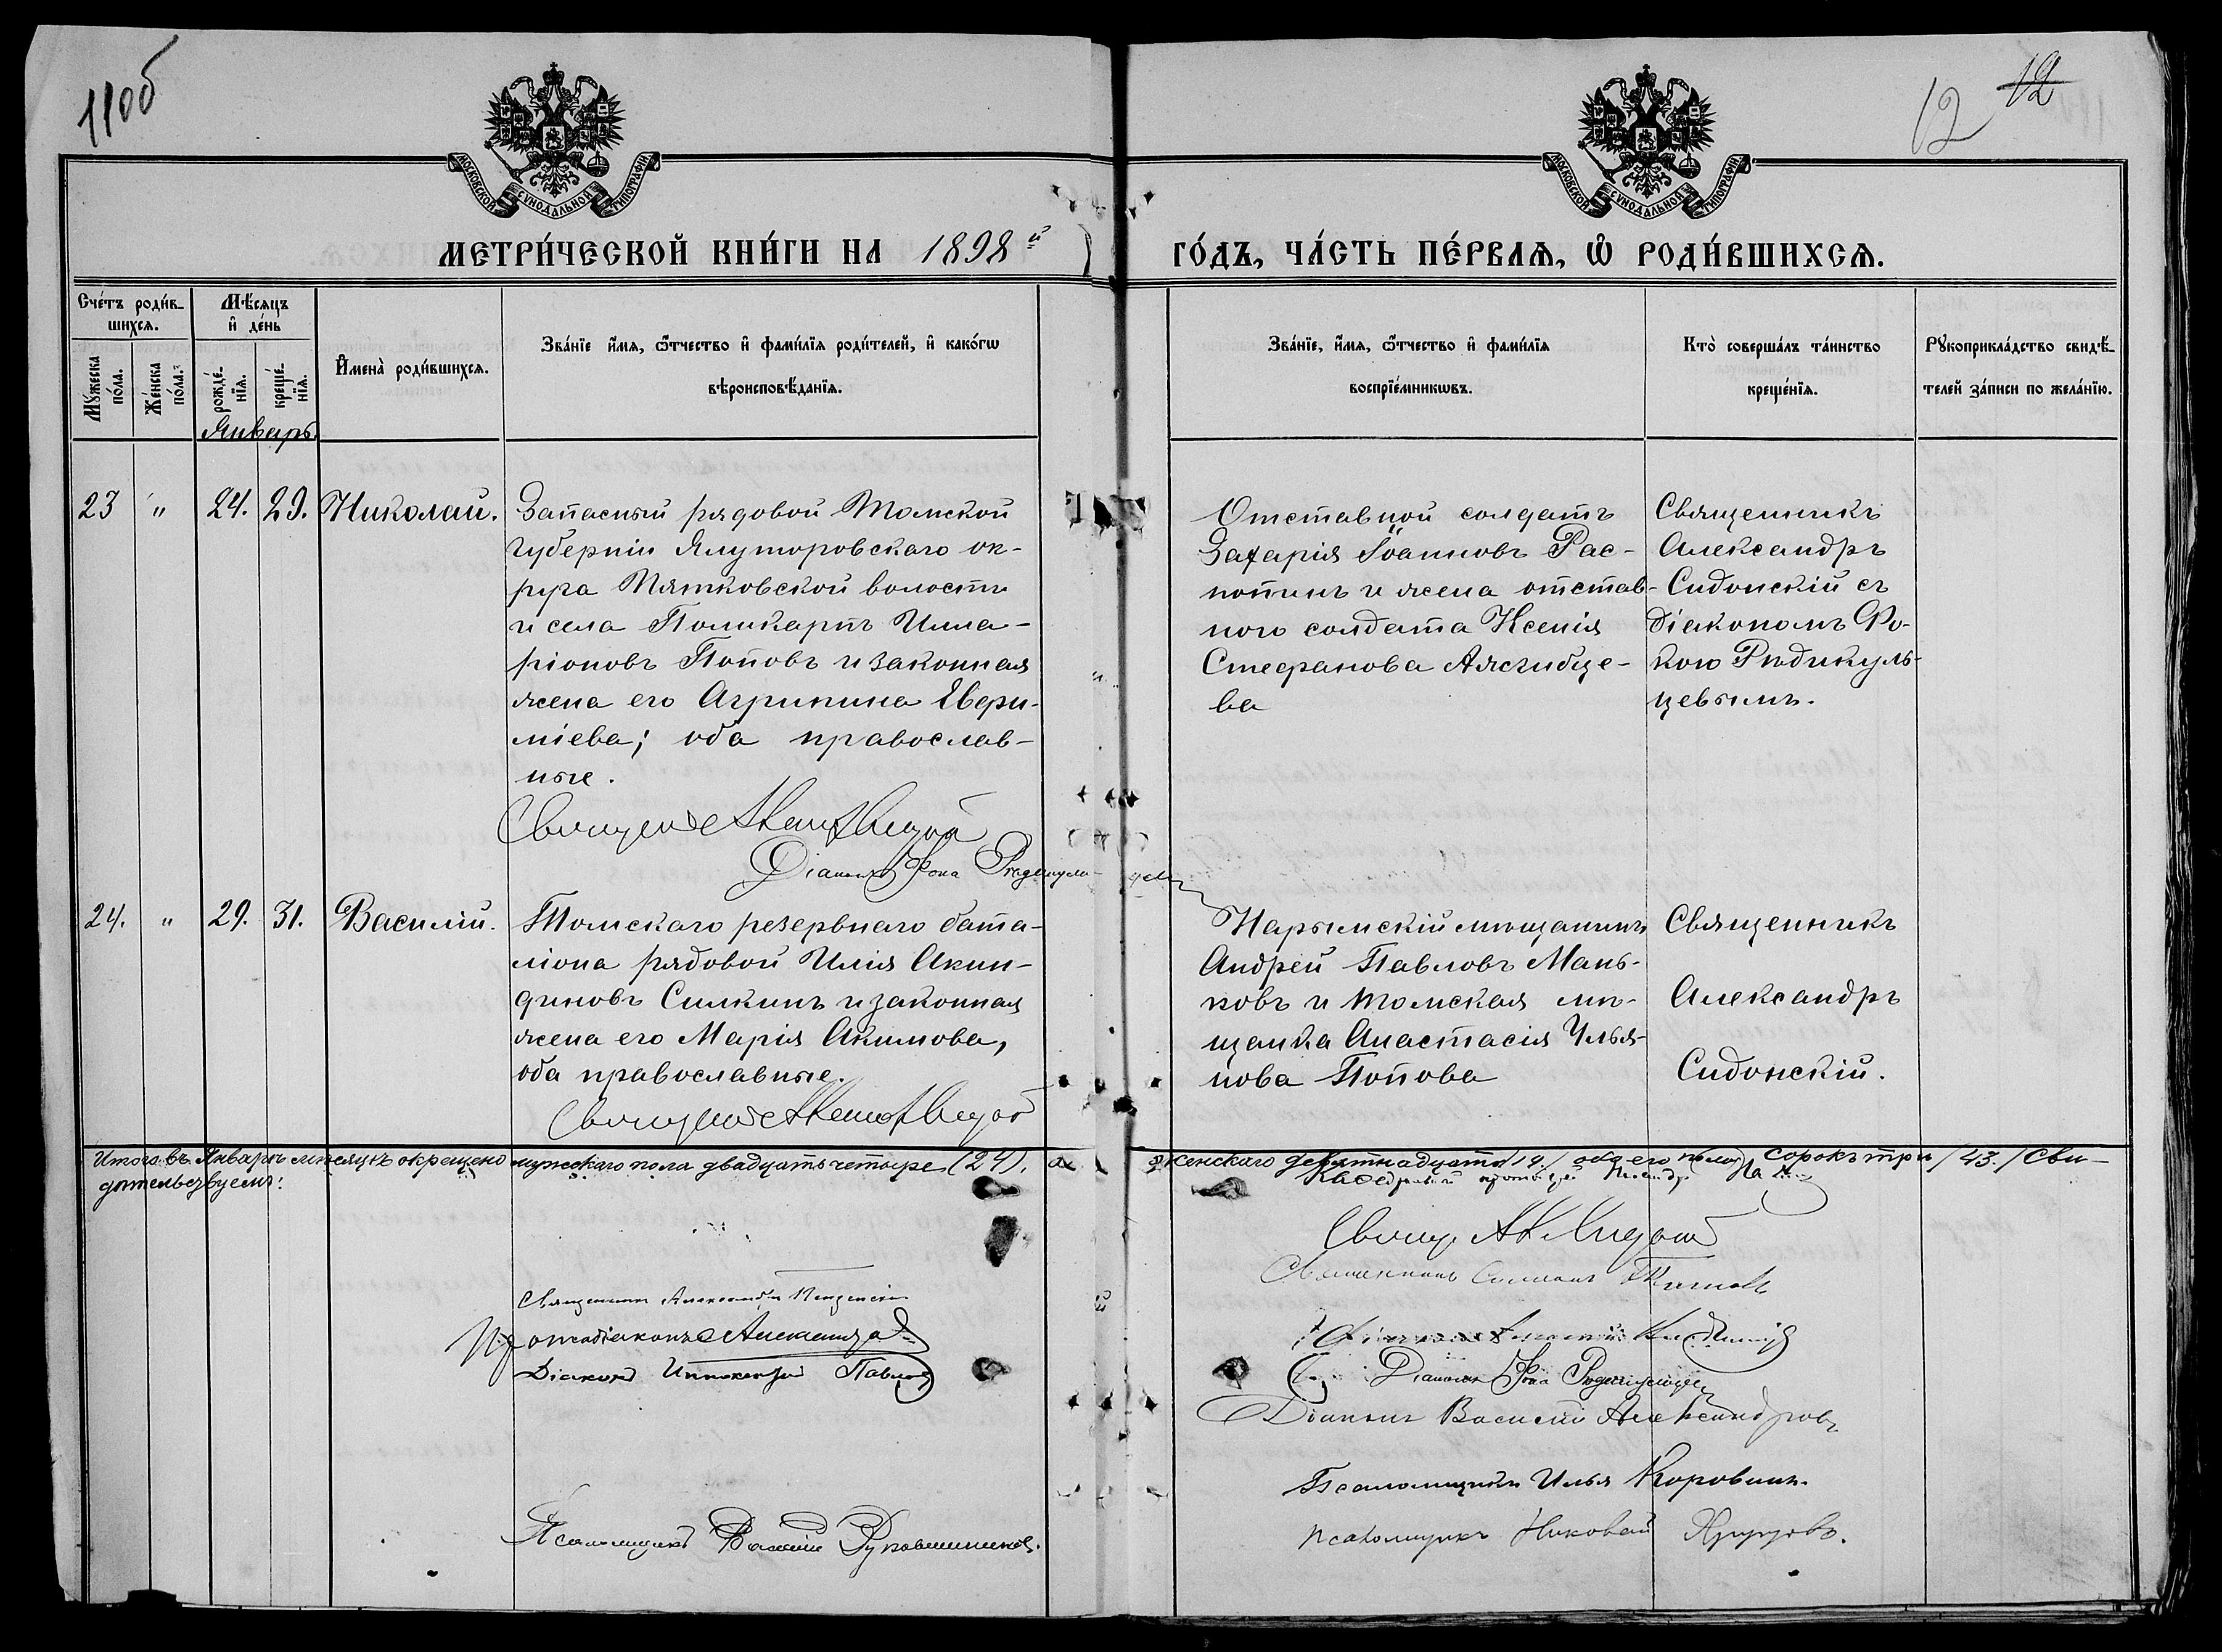 11об
12 12
МОСКОВСКОЙ СѴНОДАЛЬНОЙ ТИПОГРАФІИ
МОСКОВСКОЙ СѴНОДАЛЬНОЙ ТИПОГРАФІИ
МЕТРИ́ЧЕСКОЙ КНИ́ГИ НА 1898й ГО́ДЪ, ЧА́СТЬ ПЕ́РВАѦ, Ѡ҆ РОДИ́ВШИХСѦ.
Сче́тъ роди́в-
шихсѧ.
Мꙋ́жеска по́ла.
Же́нска по́ла.
Мѣ́сѧцъ
и҆ де́нь
рожде́-нїѧ.
креще́-нїѧ.
Январь
И҆мена̀ роди́вшихсѧ.
Зва́нїе и҆́мѧ, ѻ҆́тчество и҆ фами́лїѧ роди́телей, и҆ како́гѡ
вѣроисповѣ́данїѧ.
Зва́нїе, и҆́мѧ, ѻ҆́тчество и҆ фами́лїѧ
воспрїе́мникѡвъ.
Кто̀ соверша́лъ та́инство
креще́нїѧ.
Рꙋкоприкла́дство свидѣ́-
телей за́писи по жела́нїю.
23 " 24. 29. Николай.
Запасный рядовой Томской
Губерніи Ялуторовскаго ок-
руга Пятковской волости
и села Поликарпъ Илла-
ріоновъ Поповъ и законная
жена его Агрипина Евфи-
міева; оба православ-
ные.
Діаконъ Іона Рюдикуль-цевъ
Отставной солдатъ
Захарія Іоанновъ Рас-
попинъ и жена отстав-
ного солдата Ксенія
Стефанова
ва
Священникъ
Александръ
Сидонскій съ
діакономъ Іо-
ною Рюдикуль-
цевымъ.
24. " 29. 31. Василій.
Томскаго резервнаго бата-
ліона рядовой Илія Акин-
диновъ Силкинъ и законная
жена его Марія Акимова,
оба православные.
Нарымскій мѣщанинъ
Андрей Павловъ Мань-
ковъ и томская мѣ-
щанка Анастасія Улья-
нова Попова
Священникъ
Александръ
Сидонскій.
Итого въ Январѣ мѣсяцѣ окрещено мужскаго пола двадцать четыре (24), а женскаго девятнадцать /19./ обоего пола сорокъ три /43./ Сви-
дѣтельствуемъ:
Каѳедральный протоіерей
Священникъ Александръ
Протодіаконъ
Діаконъ Иннокентій Павловъ
Діаконъ Іона Рюдикульцевъ
Діаконъ Василій Александровъ
Псаломщикъ Илья Коровинъ.
Псаломщикъ Василій Рукавишниковъ.
псаломщикъ Николай